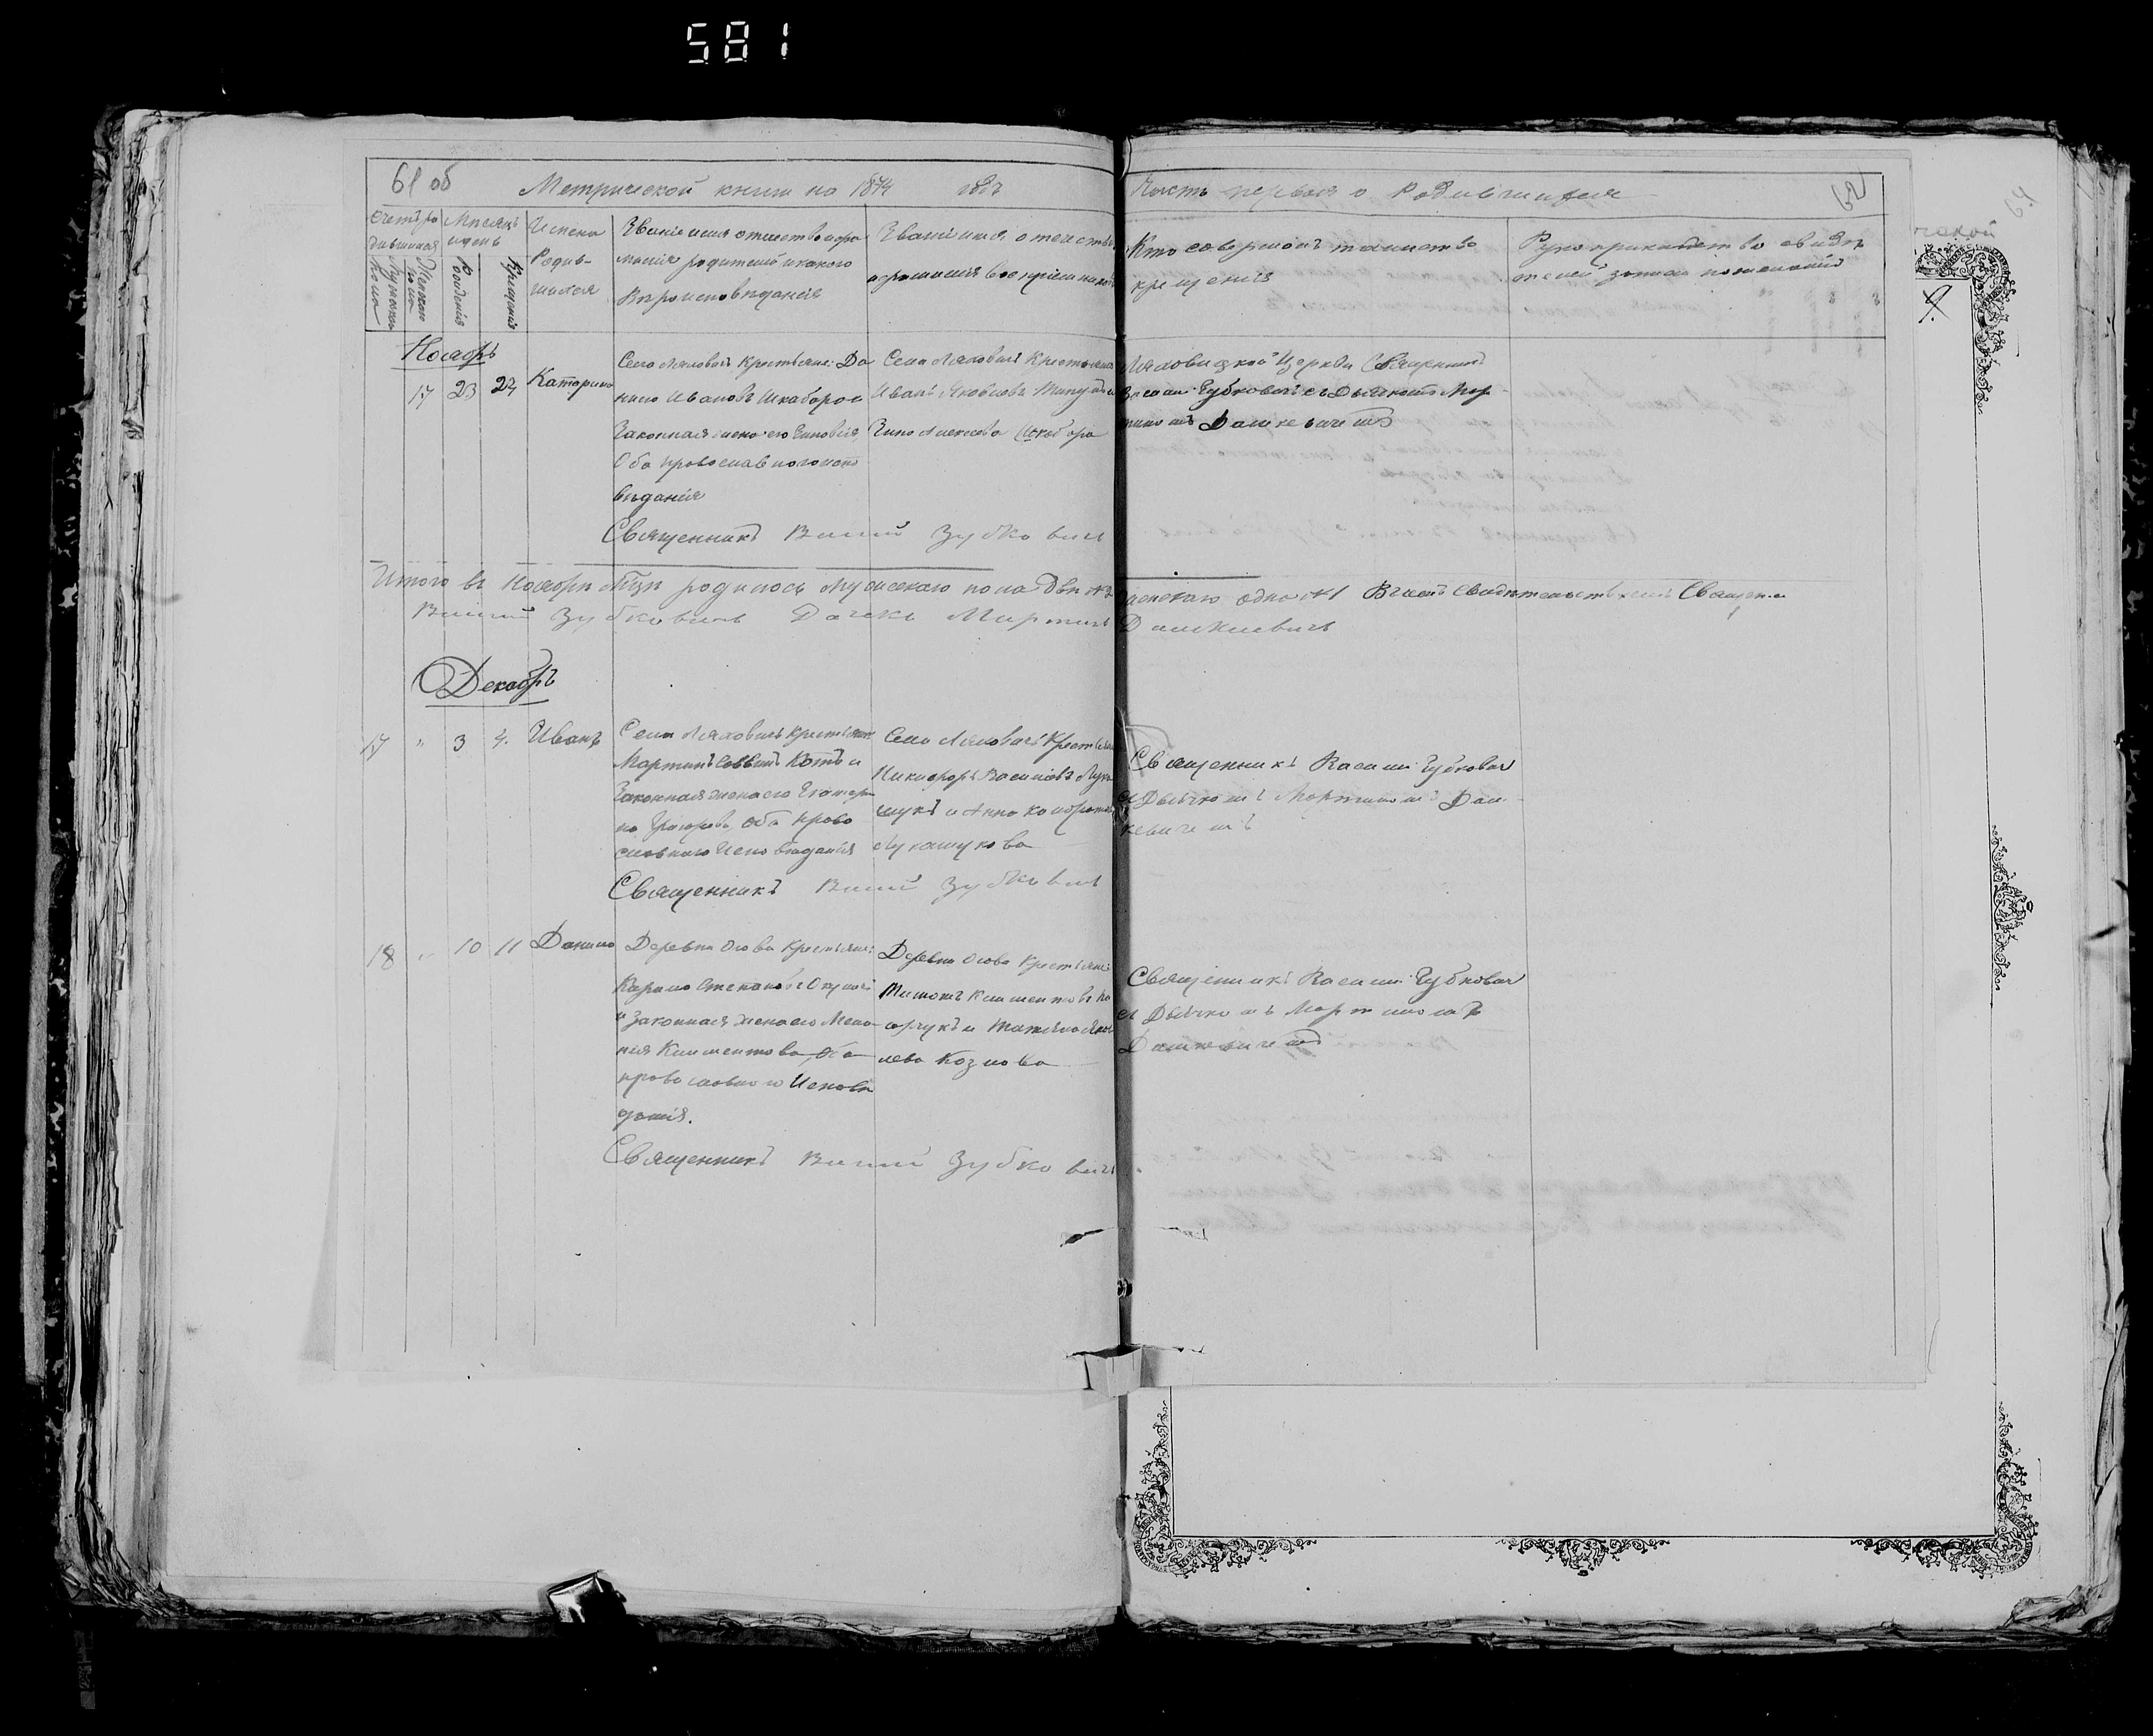 581
61 об
Метрической книги на 1874 годъ
Часть первая о Родившихся
62
64
Счетъ ро
дившихся
Мужеска
пола
Женска
пола
Месяцъ
и день
Рожденія
Крещенія
Имена
Родив-
шихся
Званіе имя отчество и фа
милія родителей и какого
вѣроисповѣданія
Званіе имя, отчество
и фамилія воспріемников
Кто совершалъ таинство
крещенія
Рукоприкладство свидѣ
телей записи по желанію
Ноябрь
17 23 24 Катерина
Село Ляховичъ Крестьяне: Да
нило Ивановъ Шкаборов
Законная жена его Зиновія
Оба православного испо
вѣданія
Село Ляховичъ Крестьяне
Иванъ Яковлевъ
Алексеева
Ляховицкой Церкви Священникъ
Василій Зубковичъ съ Дьячкомъ Мар
тиномъ Дашкевичемъ
Священникъ Василій Зубковичъ
Итого въ Ноябрѣ Мцѣ родилось мужескаго пола два №2
женскаго одно №1 Въ чемъ Свидѣтельствуемъ Священ.
Василій Зубковичъ Дячекъ Мартинъ
Дашкиевичъ
Декабрь
17 " 3 4. Иванъ
Села Ляховичъ Крестьяне
Мартинъ Котъ и
Законная жена его Екатери
на Григорева Оба право
славнаго Исповѣданія
Села Ляховичъ Крестьяне
Никифоръ Василіевъ Лука
шукъ и Анна
Лукашукова
Священникъ Василій Зубкович
съ Дьячкомъ Мартиномъ Даш-
кевичемъ
Священникъ Василій Зубковичъ
18 " 10 11 Данило
Деревни Осова Крестьяне:
Степановъ
и Законная жена его Мела-
нія Климентова, Оба
православного Исповѣ
данія.
Деревни Осова Крестьяне
Климентовъ
и Татіяна
Козлова
Священникъ Василій Зубкович
съ Дьячкомъ Мартиномъ
Дашкевичемъ
Священникъ Василій Зубковичъ